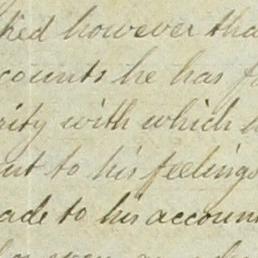 ked however tha
counts he has fo
rity with which h
nt to his feelings
ade to his account